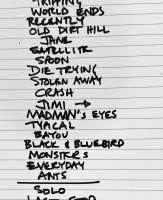 TRIPPING
WORLD ENDS
RECENTLY
OLD DIRT HILL
JANE
SATELLITE
SPOON
DIE TRYING
STOLEN AWAY
CRASH
JIMI →
MADMAN'S EYES
TYPICAL
BAYOU
BLACK & BLUEBIRD
MONSTERS
EVERYDAY
ANTS
SOLO
LAST STOP